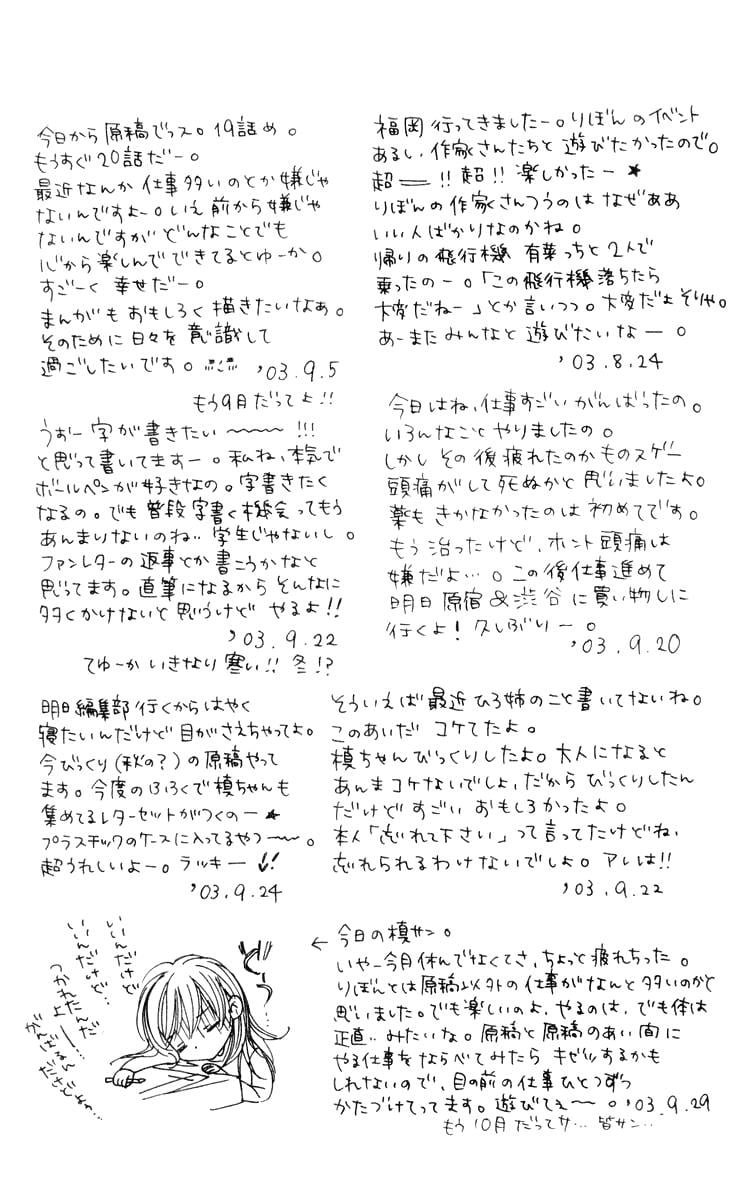 福岡行ってきましたー。りぼんのイベント
あるし、作家さんたちと遊びたかったので。
超――!!超!!楽しかったー★
りぼんの作家さんつうのはなぜああ
いい人ばかりなのかね。
帰りの飛行機 有葉っちと2人で
乗ったのー。「この飛行機落ちたら
大変だねー」とか言いつつ。大変だよそりゃ。
あーまたみんなと遊びたいなー。
'03.8.24
今日から原稿でっス。19話め。
もうすぐ20話だー。
最近なんか仕事多いのとか嫌じゃ
ないんですよー。いえ前から嫌じゃ
ないんですがどんなことでも
心から楽しんでできてるとゆーか。
すごーく幸せだー。
まんがもおもしろく描きたいなあ。
そのために日々を意識して
過ごしたいです。
'03.9.5
もう9月だってよ!!
今日はね、仕事すごいがんばったの。
いろんなことやりましたの。
しかしその後疲れたのかものスゲー
頭痛がして死ぬかと思いましたよ。
薬もきかなかったのは初めてです。
もう治ったけど、ホント頭痛は
嫌だよ…。この後仕事進めて
明日原宿&渋谷に買い物しに
行くよ!久しぶりー。
'03.9.20
うおー字が書きたい〜〜〜!!!
と思って書いてますー。私ね、本気で
ボールペンが好きなの。字書きたく
なるの。でも普段字書く機会ってもう
あんまりないのね‥学生じゃないし。
ファンレターの返事とか書こうかなと
思ってます。直筆になるからそんなに
多くかけないと思うけど やるよ!!
'03.9.22
てゆーかいきなり寒い!!冬!?
そういえば最近ひろ姉のこと書いてないね。
このあいだ コケてたよ。
槙ちゃんびっくりしたよ。大人になると
あんまコケないでしょ、だからびっくりしたん
だけどすごいおもしろかったよ。
本人「忘れて下さい」って言ってたけどね、
忘れられるわけないでしょ。アレは!!
'03.9.22
明日編集部行くからはやく
寝たいんだけど目がさえちゃってよ。
今びっくり(秋の?)の原稿やって
ます。今度のふろくで槙ちゃんも
集めてるレターセットがつくのー★
プラスチックのケースに入ってるやつ〜〜。
超うれしいよー。ラッキー!!
'03.9.24
←今日の槙サン。
いやー今月休んでなくてさ、ちょっと疲れちった。
りぼんとは原稿以外の仕事がなんと多いのかと
思いました。でも楽しいのよ、やるのは、でも体は
正直‥みたいな。原稿と原稿のあい間に
やる仕事をならべてみたらキゼツするかも
しれないので、目の前の仕事ひとつずつ
かたづけてってます。遊びてえ〜。'03.9.29
もう10月だってサ…皆サン‥
いいんだけど
いいんだけど…
つかれたんだ
よー…
がんばるん
だけどねっ…